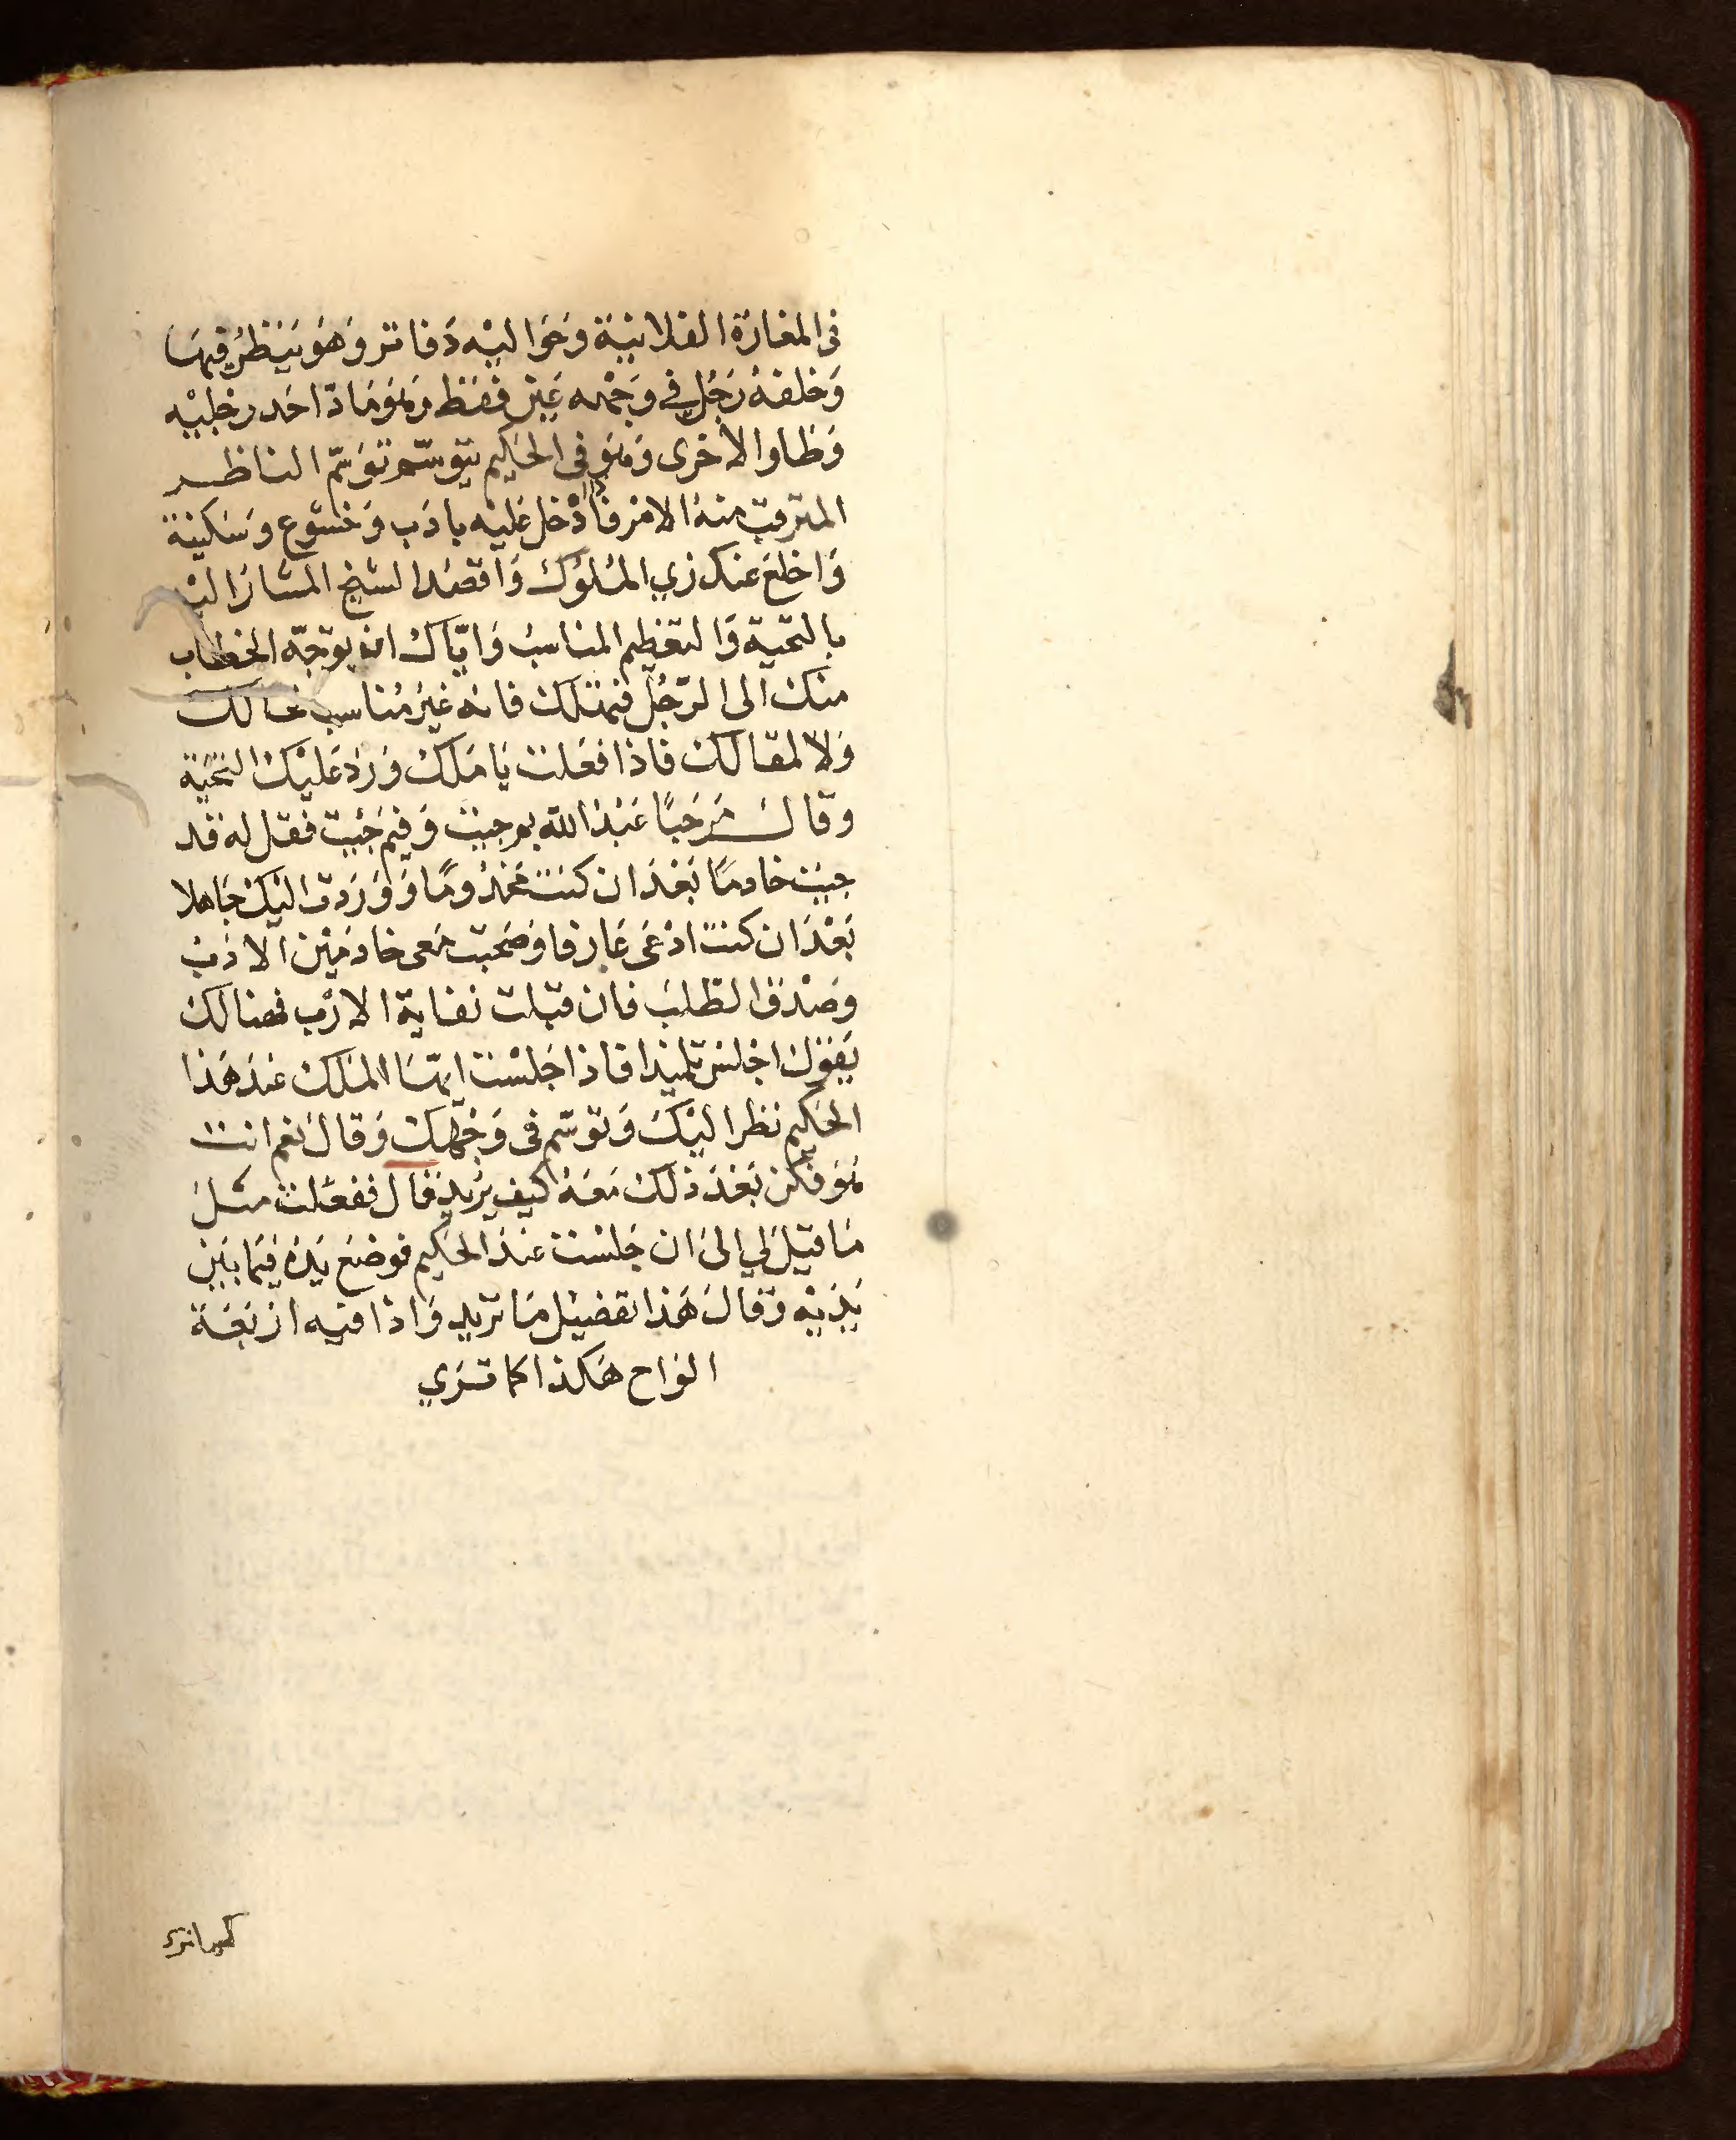 فى المغارة الفلانية وَحَوَاليْه دَفاتر وَهُوَ يَنظُر فيهَا
وَخلفهُ رَجُل في وَجْهه عَيْن فقَط وَهوَ مَادّ احَد رجْليْه
وَطَاو الأخرى وَهوَ فى الحَكِيم يتوسّم توَسّم الناظر
المترقب منهُ الامْر فادْخل عَليْه بادَب وَخشوع وَسَكينة
وَاخلع عنك زي الملوك وَاقصُد الشيخ المشارَ اليْه
بالتحية وَالتعْظيم المناسب وَايّاك ان يوَجّه الخطاب
منك الى الرّجُل فتهْلك فانه غيْرُ مُناسب لحالك
وَلا لمقالك فاذا فعَلت يَا مَلك وَرَدّ عَليْك التحيّة
وقال مَرحبًا عَبْدَ الله بم جيت وَفيم جئيت فقل له قد
جيت خادمًا بَعْدَ ان كنت مَخْدُومًا وَوَرَدت اليْك جَاهلا
بَعْدَ ان كنت ادْعَى عَارفا وَصَحبت مَعى خادمَيْن الادَب
وصَدْق الطلب فان قبلت نفاية الارْب فهنالك
يقول اجْلس تلميذا فاذا جَلسْت ايهَا الملك عنْدَ هَذا
الحَكِيم نظر اليْك وَتوسّم فى وَجْهك وَقال نعم انت
هُوَ فكن بَعْدَ ذلك مَعَهُ كيف يُريد قال ففعَلت مثل
مَا قيلَ لي الى ان جَلسْت عندَ الحكيم فوضعَ يَدَهُ فيمَا بَيْن
يَدَيْه وَقالَ هَذا تفصيْل مَا تريد وَاذا فيه ارْبَعَة
الوَاح هَكذا كما تَري